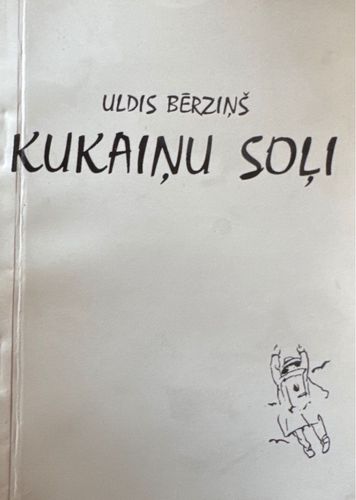 ULDIS BĒRZIŅŠ
KUKAIŅU SOĻI